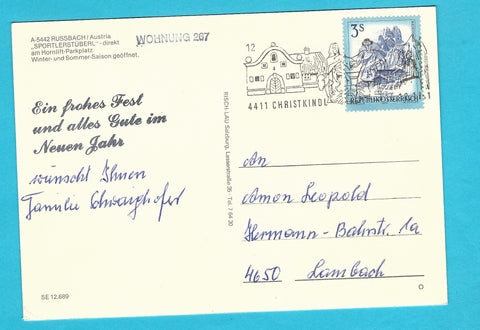 A-5442 RUSSBACH / Austria
„SPORTLERSTÜBERL"-direkt
am Hornlift-Parkplatz.
Winter- und Sommer-Saison geöffnet.
WOHNUNG 207
12
4411 CHRISTKINDL
3s
REPUBLIK ÖSTERREICH
Ein frohes Fest
und alles Gute im
Neuen Jahr
wünscht Ihnen
Familie Schwaighofer
RISCH-LAU Salzburg, Lasserstraße 35 - Tel. 7 64 30
An
Amon Leopold
Hermann-Bahrstr. 1a
4650 Lambach
SE 12.889